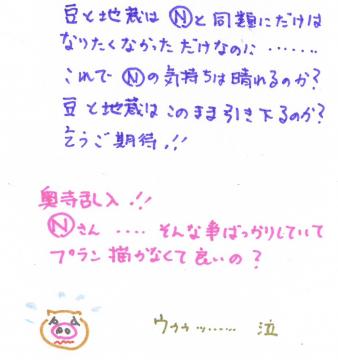 豆と地蔵は Ⓝと同類にだけは
なりたくなかっただけなのに ‥‥‥‥
これで Ⓝの気持ちは晴れるのか?
豆と地蔵はこのまま引き下るのか?
乞うご期待!!
奥寺乱入!!
Ⓝさん ‥‥ そんな事ばっかりしていて
プラン描かなくて良いの?
ウゥゥッ‥‥‥ 泣